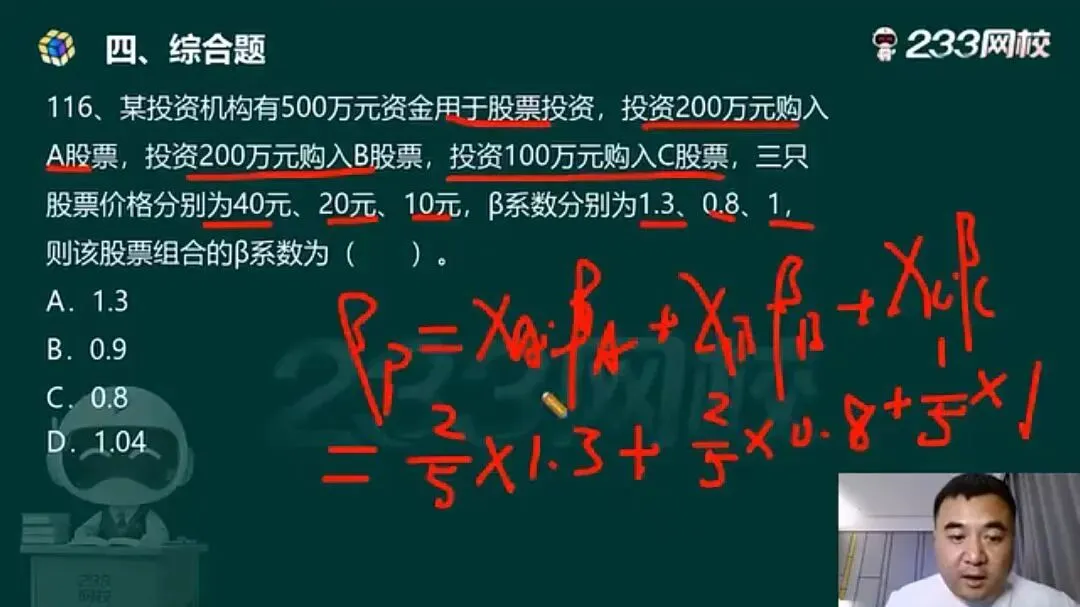 四、综合题
233网校
116、某投资机构有500万元资金用于股票投资，投资200万元购入
A股票，投资200万元购入B股票，投资100万元购入C股票，三只
股票价格分别为40元、20元、10元，β系数分别为1.3、0.8、1，
则该股票组合的β系数为（　　）。
A. 1.3
B. 0.9
C. 0.8
D. 1.04
βP = XA·βA + XBβB + XC·βC
= 2/5 × 1.3 + 2/5 × 0.8 + 1/5 × 1
233网校
233
网校